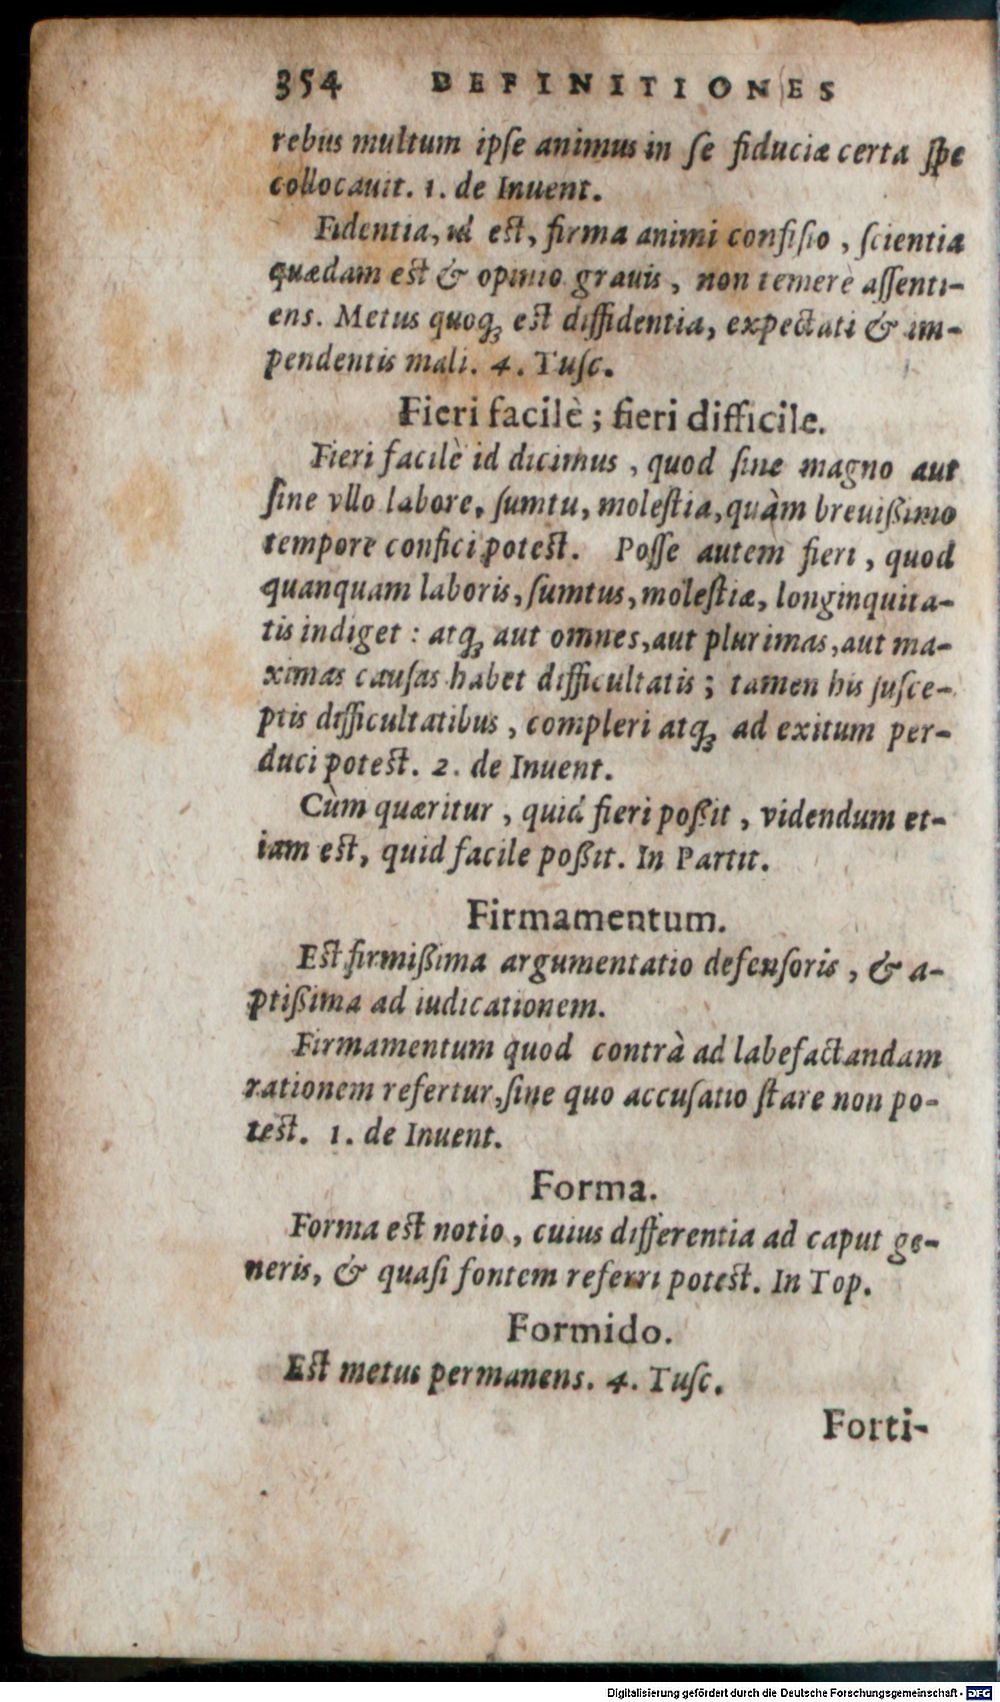 354 DEFINITIONES
rebus multum ipſe animus in ſe fiduciæ certa ſpe
collocauit. 1. de Inuent.
Fidentia, id eſt, firma animi confiſio, ſcientia
quædam eſt & opinio grauis, non temerè aſſenti-
ens. Metus quoq́ꝫ eſt diffidentia, expectati & im-
pendentis mali. 4. Tuſc.
Fieri facilè; fieri difficile.
Fieri facilè id dicimus, quod ſine magno aut
ſine vllo labore, ſumtu, moleſtia, quàm breuißimo
tempore confici poteſt. Poſſe autem fieri, quod
quanquam laboris, ſumtus, moleſtiæ, longinquita-
tis indiget: atqꝫ aut omnes, aut plurimas, aut ma-
ximas cauſas habet difficultatis; tamen his ſuſce-
ptis difficultatibus, compleri atqꝫ ad exitum per-
duci poteſt. 2. de Inuent.
Cùm quæritur, quid fieri poßit, videndum et-
iam eſt, quid facile poßit. In Partit.
Firmamentum.
Eſt firmißima argumentatio defenſoris, & a-
ptißima ad iudicationem.
Firmamentum quod contrà ad labefactandam
rationem refertur, ſine quo accuſatio ſtare non po-
teſt. 1. de Inuent.
Forma.
Forma eſt notio, cuius differentia ad caput ge-
neris, & quaſi fontem referri poteſt. In Top.
Formido.
Eſt metus permanens. 4. Tuſc.
Forti-
Digitalisierung gefördert durch die Deutsche Forschungsgemeinschaft - DFG